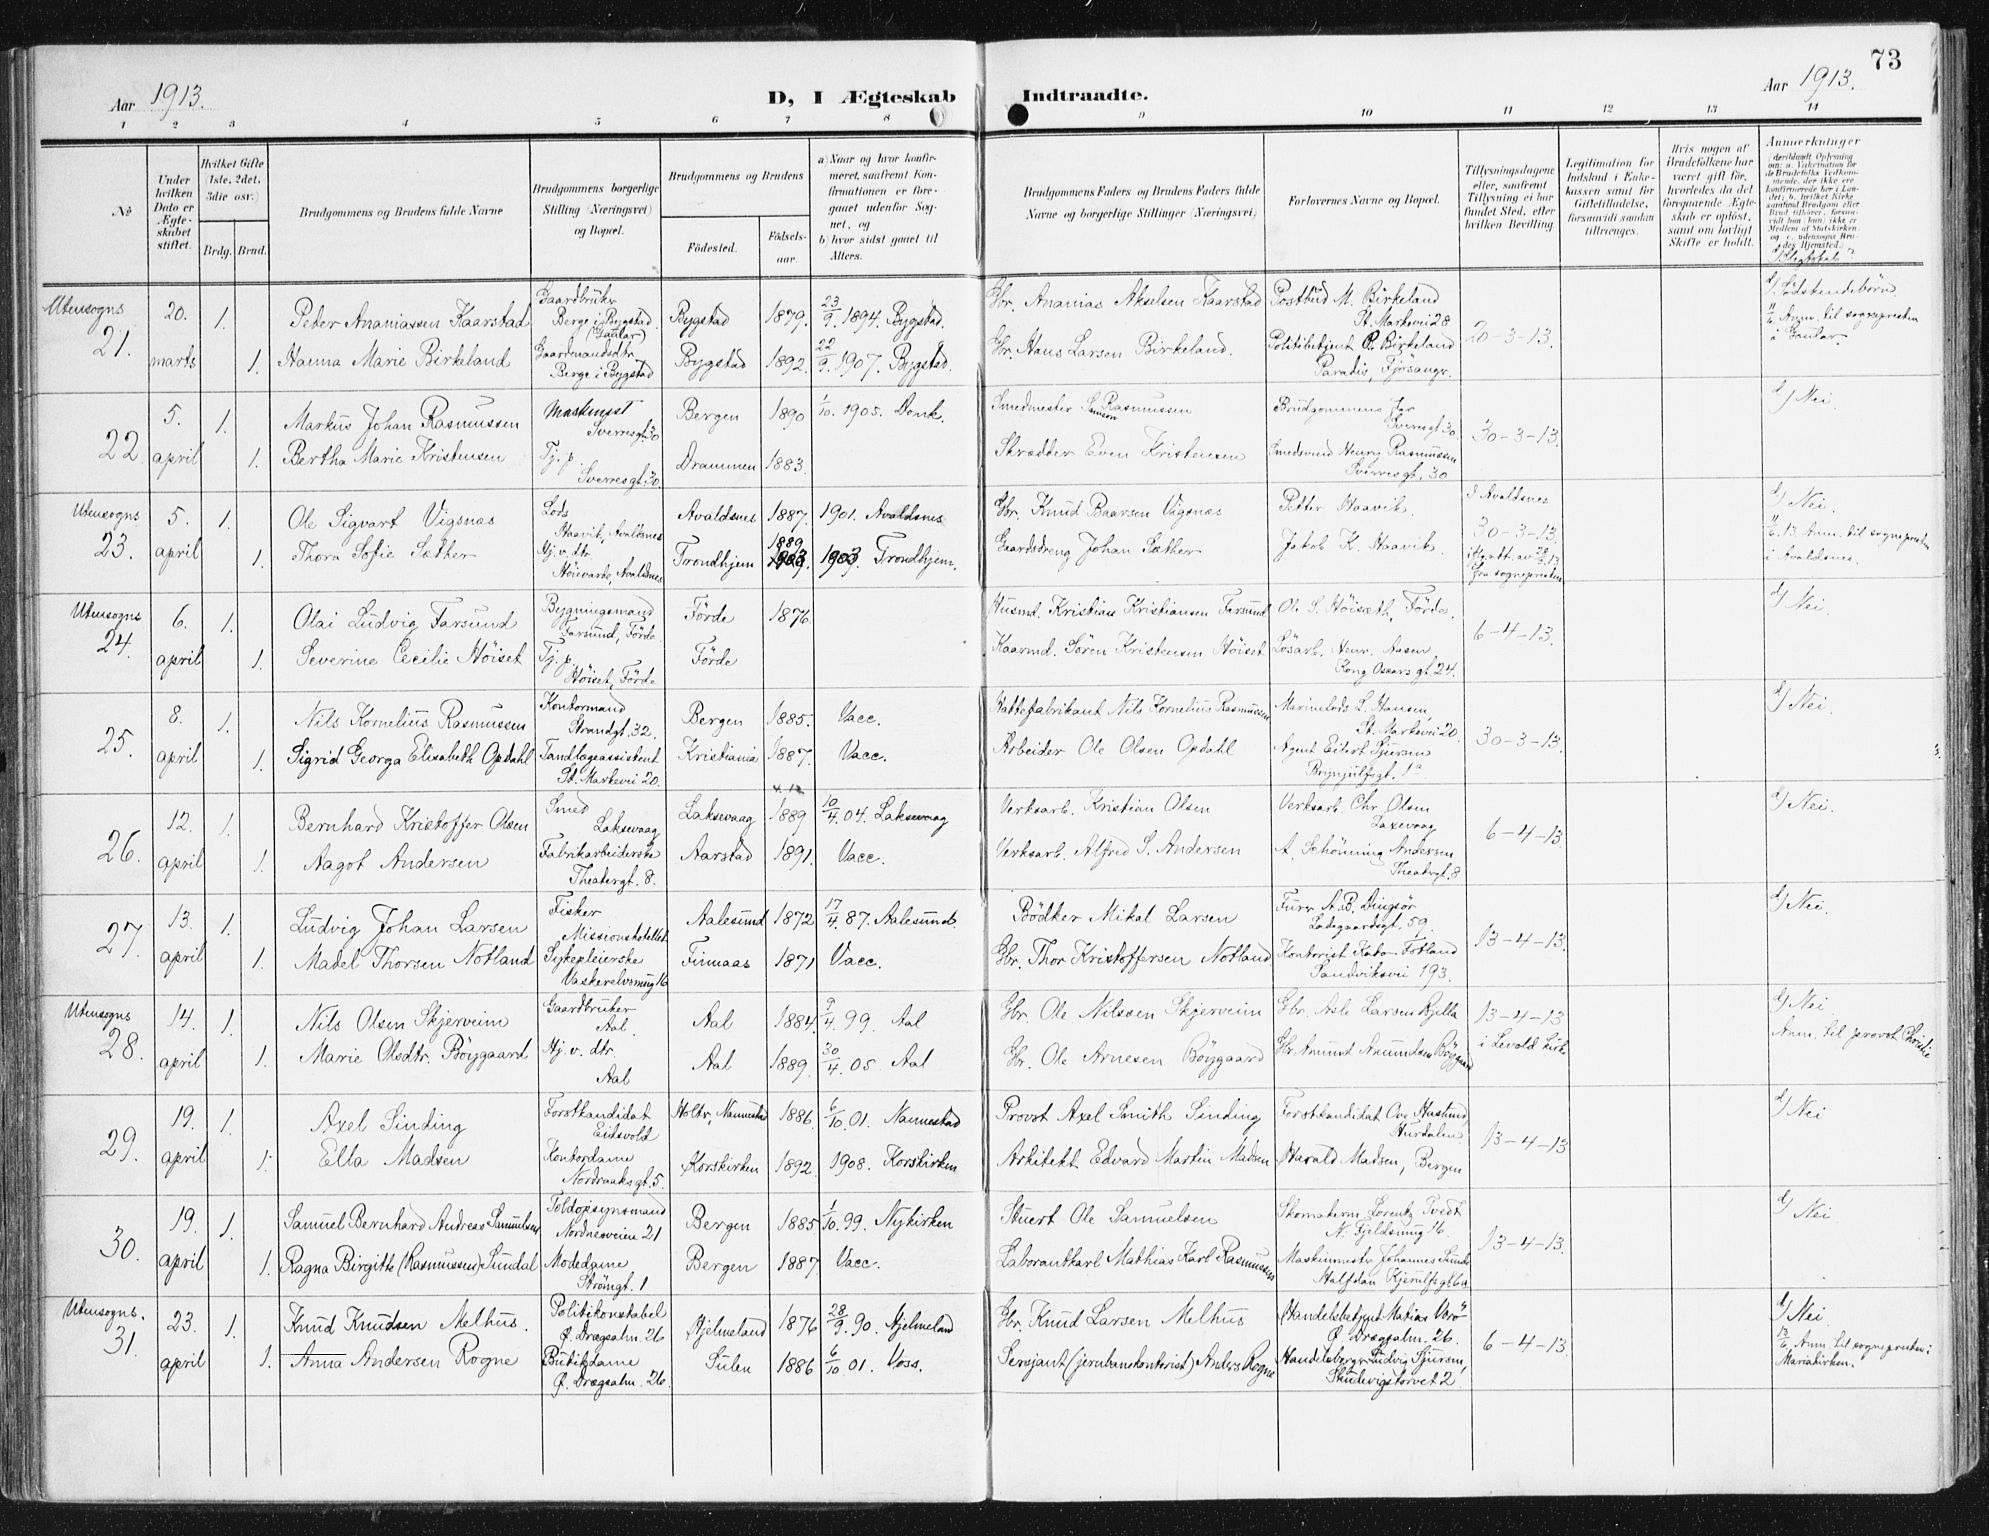 73
Aar 1913.
D, I Ægteskab Indtraadte.
Aar 1913.
1 2 3 4 5 6 7 8 9 10 11 12 13 14
No
Under hvilken Dato er Ægteskabet stiftet.
Hvilket Gifte (1ste, 2det, 3die osv.)
Brdg. Brud.
Brudgommens og Brudens fulde Navne
Brudgommens borgerlige Stilling (Næringsvei) og Bopæl.
Brudgommens og Brudens
Fødested.
Fødselsaar.
a) Naar og hvor konfirmeret, saafremt Konfirmationen er foregaaet udenfor Sognet, og
b) hvor sidst gaaet til Alters.
Brudgommens Faders og Brudens Faders fulde Navne og borgerlige Stillinger (Næringsvei)
Forlovernes Navne og Bopæl.
Tillysningsdagene eller, saafremt Tillysning ei har fundet Sted, efter hvilken Bevilling
Legitimation for Indskud i Enkekassen samt for Giftetilladelse, forsaavidt saadan tiltrænges.
Hvis nogen af Brudefolkene har været gift før, hvorledes da det foregaaende Ægteskab er opløst, samt om lovligt Skifte er holdt.
Anmerkninger
Utensogns
21.
20. marts
1. Peder Ananiassen Kaarstad
Gaardbruker Berge i Bygstad (Gaular)
Bygstad 1879. 23/9. 1894. Bygstad.
Gbr. Ananias Akselsen Kaarstad
Postbud M. Birkeland St. Markevei 28
20-3-13.
d/ Sødskendebørn.
Anm. til sognepresten i Gaular.
1. Hanna Marie Birkeland
Gaardmandsdtr. Berge i Bygstad
Bygstad 1892. 22/9. 1907. Bygstad.
Gbr. Hans Larsen Birkeland.
Politibetjent P. Birkeland Paradis, Fjøsanger.
22
5. april
1. Markus Johan Rasmussen
Maskinist Sverresgt. 30
Bergen 1890 1/10. 1905. Domk.
Smedmester Samson Rasmussen
Brudgommens far Sverresgt. 30.
30-3-13.
d/ Nei.
1. Bertha Marie Kristensen
Tj. p. Sverresgt. 30.
Drammen 1883.
Skrædder Even Kristensen
Smedsvend Henry Rasmussen Sverresgt. 30
Utensogns
23.
5. april
1. Ole Sigvart Vigsnæs
Lods Haavik, Avaldsnes
Avaldsnes 1887. 1901. Avaldsnes
Gbr. Knud Baarsen Vigsnæs
Petter Haavik.
I Avaldsnes
30-3-13.
ifg. att. av 28/3 13 fra sognepresten
d/ Nei.
Anm. til sognepresten i Avaldsnes.
1. Thora Sofie Sæther
Hj. v. dtr. Høievarde, Avaldsnes
Trondhjem 1889 1903 Trondhjem.
Gaardsdreng Johan Sæther
Jakob K. Haavik.
Utensogns
24.
6. april
1. Olai Ludvig Farsund
Bygningsmand Farsund, Førde
Førde 1876.
Husmd. Kristian Kristiansen Farsund
Ole S. Høisæth, Førde.
6-4-13.
d/ Nei.
1. Severine Cecilie Høiset
Tj. p. Høiset, Førde
Førde
Kaarmd. Søren Kristensen Høiset
Løsarb. Henr. Aasen Kong Oscars gt. 24.
25.
8. april
1. Nils Kornelius Rasmussen
Kontormand Strandgt. 32.
Bergen 1885. Vacc.
Hattefabrikant Nils Kornelius Rasmussen
Marinelods L. Hansen St. Markevei 20.
30-3-13.
d/ Nei.
1. Sigrid Georga Elisabeth Opdahl
Tandlægeassistent St. Markevei 20.
Kristiania 1887. Vacc.
Arbeider Ole Olsen Opdahl
Agent Eilert Sjursen Brynjulfsgt. 1a
26.
12. april
1. Bernhard Kristoffer Olsen
Smed Laksevaag
Laksevaag 1889 10/4. 04. Laksevaag
Verksarb. Kristian Olsen
Verksarb. Chr. Olsen Laxevaag
6-4-13.
d/ Nei.
1. Aagot Andersen
Fabrikarbeiderske Theatergt. 8.
Aarstad 1891. Vacc.
Verksarb. Alfred S. Andersen
A. Schönning Andersen Theatergt. 8
27.
13. april
1. Ludvig Johan Larsen
Fisker Missionshotellet
Aalesund 1872 17/4. 87. Aalesund.
Bødker Mikal Larsen
Furer A. B. Dingsør Ladegaardsgt. 59.
13-4-13.
d/ Nei.
1. Madel Thorsen Notland
Sykepleierske Vaskerelvsmug 16
Finnaas 1871 Vacc.
Gbr. Thor Kristoffersen Notland
Kontorist Kato Fotland Sandviksvei 193.
Utensogns
28.
14. april
1. Nils Olsen Skjerveim
Gaardbruker Aal.
Aal 1884. 9/4. 99. Aal
Gbr. Ole Nilssen Skjerveim
Gbr. Asle Larsen Rjella
13-4-13
i Levold kirke
d/ Nei
Anm. til provst Christie
1. Marie Olsdtr. Bøygaard
Hj. v. dtr. Aal
Aal 1889. 30/4. 05. Aal
Gbr. Ole Arnesen Bøygaard
Gbr. Amund Amundsen Bøygaard
29.
19. april
1. Axel Sinding
Forstkandidat Eidsvold
Holtr, Nannestad 1886. 6/10. 01. Nannestad
Provst Axel Smith Sinding
Forstkandidat Ove Huslund, Hurdalen.
13-4-13
d/ Nei
1. Ella Madsen
Kontordame Nordraaksgt. 5.
Korskirken 1892. 1908. Korskirken
Arkitekt Edvard Martin Madsen
Harald Madsen, Bergen
30.
19. april
1. Samuel Bernhard Andreas Samuelsen
Toldopsynsmand Nordnesveien 21
Bergen 1885. 1/10. 99. Nykirken
Stuert Ole Samuelsen
Skomakerm. Lorentz Tvedt N. Fjeldsmug 16.
13-4-13.
d/ Nei.
1. Ragna Birgitte (Rasmussen) Sundal
Modedame Strømgt. 1
Bergen 1887. Vacc.
Laborantkarl Mathias Karl Rasmussen
Maskinmester Johannes Sunde Halfdan Kjerulfsgt. 6a
Utensogns.
31.
23. april
1. Knud Knudsen Melhus.
Politikonstabel Ø. Drægsalm. 26
Hjelmeland 1876 28/9. 90. Hjelmeland
Gbr. Knud Larsen Melhus
Handelsbetjent Matias Vorø Ø. Drægsalm. 26.
6-4-13.
d/ Nei.
Anm. til sognepresten i Mariakirken.
1. Anna Andersen Rogne
Butikdame Ø. Drægsalm. 26.
Sulen 1886 6/10. 01. Voss.
Sersjant (jernbanekontorist) Anders Rogne
Handelsborger Ludvig Sjursen, Skudevigstorvet 2